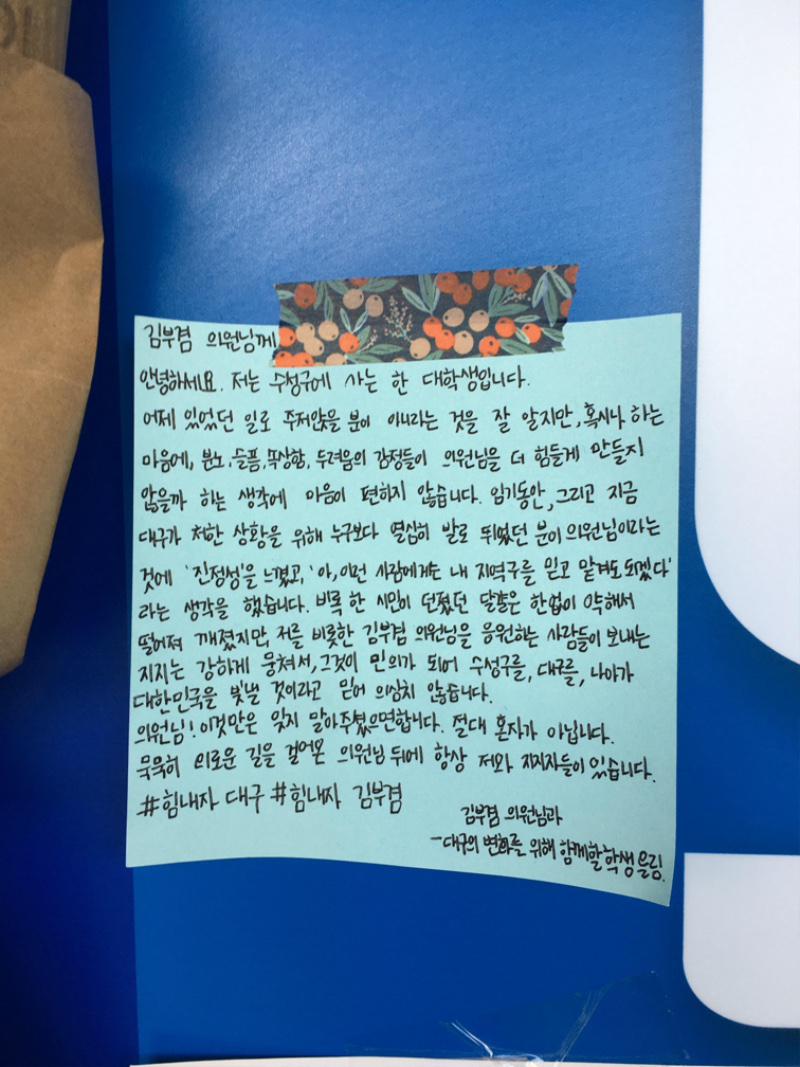 김부겸 의원님께
안녕하세요. 저는 수성구에 사는 한 대학생입니다.
어제 있었던 일로 주저앉을 분이 아니라는 것을 잘 알지만, 혹시나 하는
마음에, 분노, 슬픔, 속상함, 두려움의 감정들이 의원님을 더 힘들게 만들지
않을까 하는 생각에 마음이 편하지 않습니다. 임기동안, 그리고 지금
대구가 처한 상황을 위해 누구보다 열심히 발로 뛰었던 분이 의원님이라는
것에 '진정성'을 느꼈고, '아, 이런 사람에게는 내 지역구를 믿고 맡겨도 되겠다'
라는 생각을 했습니다. 비록 한 시민이 던졌던 달걀은 한없이 약해서
떨어져 깨졌지만, 저를 비롯한 김부겸 의원님을 응원하는 사람들이 보내는
지지는 강하게 뭉쳐서, 그것이 민의가 되어 수성구를, 대구를, 나아가
대한민국을 빛낼 것이라고 믿어 의심치 않습니다.
의원님! 이것만은 잊지 말아주셨으면합니다. 절대 혼자가 아닙니다.
묵묵히 외로운 길을 걸어온 의원님 뒤에 항상 저와 지지자들이 있습니다.
#힘내자 대구 #힘내자 김부겸
김부겸 의원님과
-대구의 변화를 위해 함께할 학생 올림.